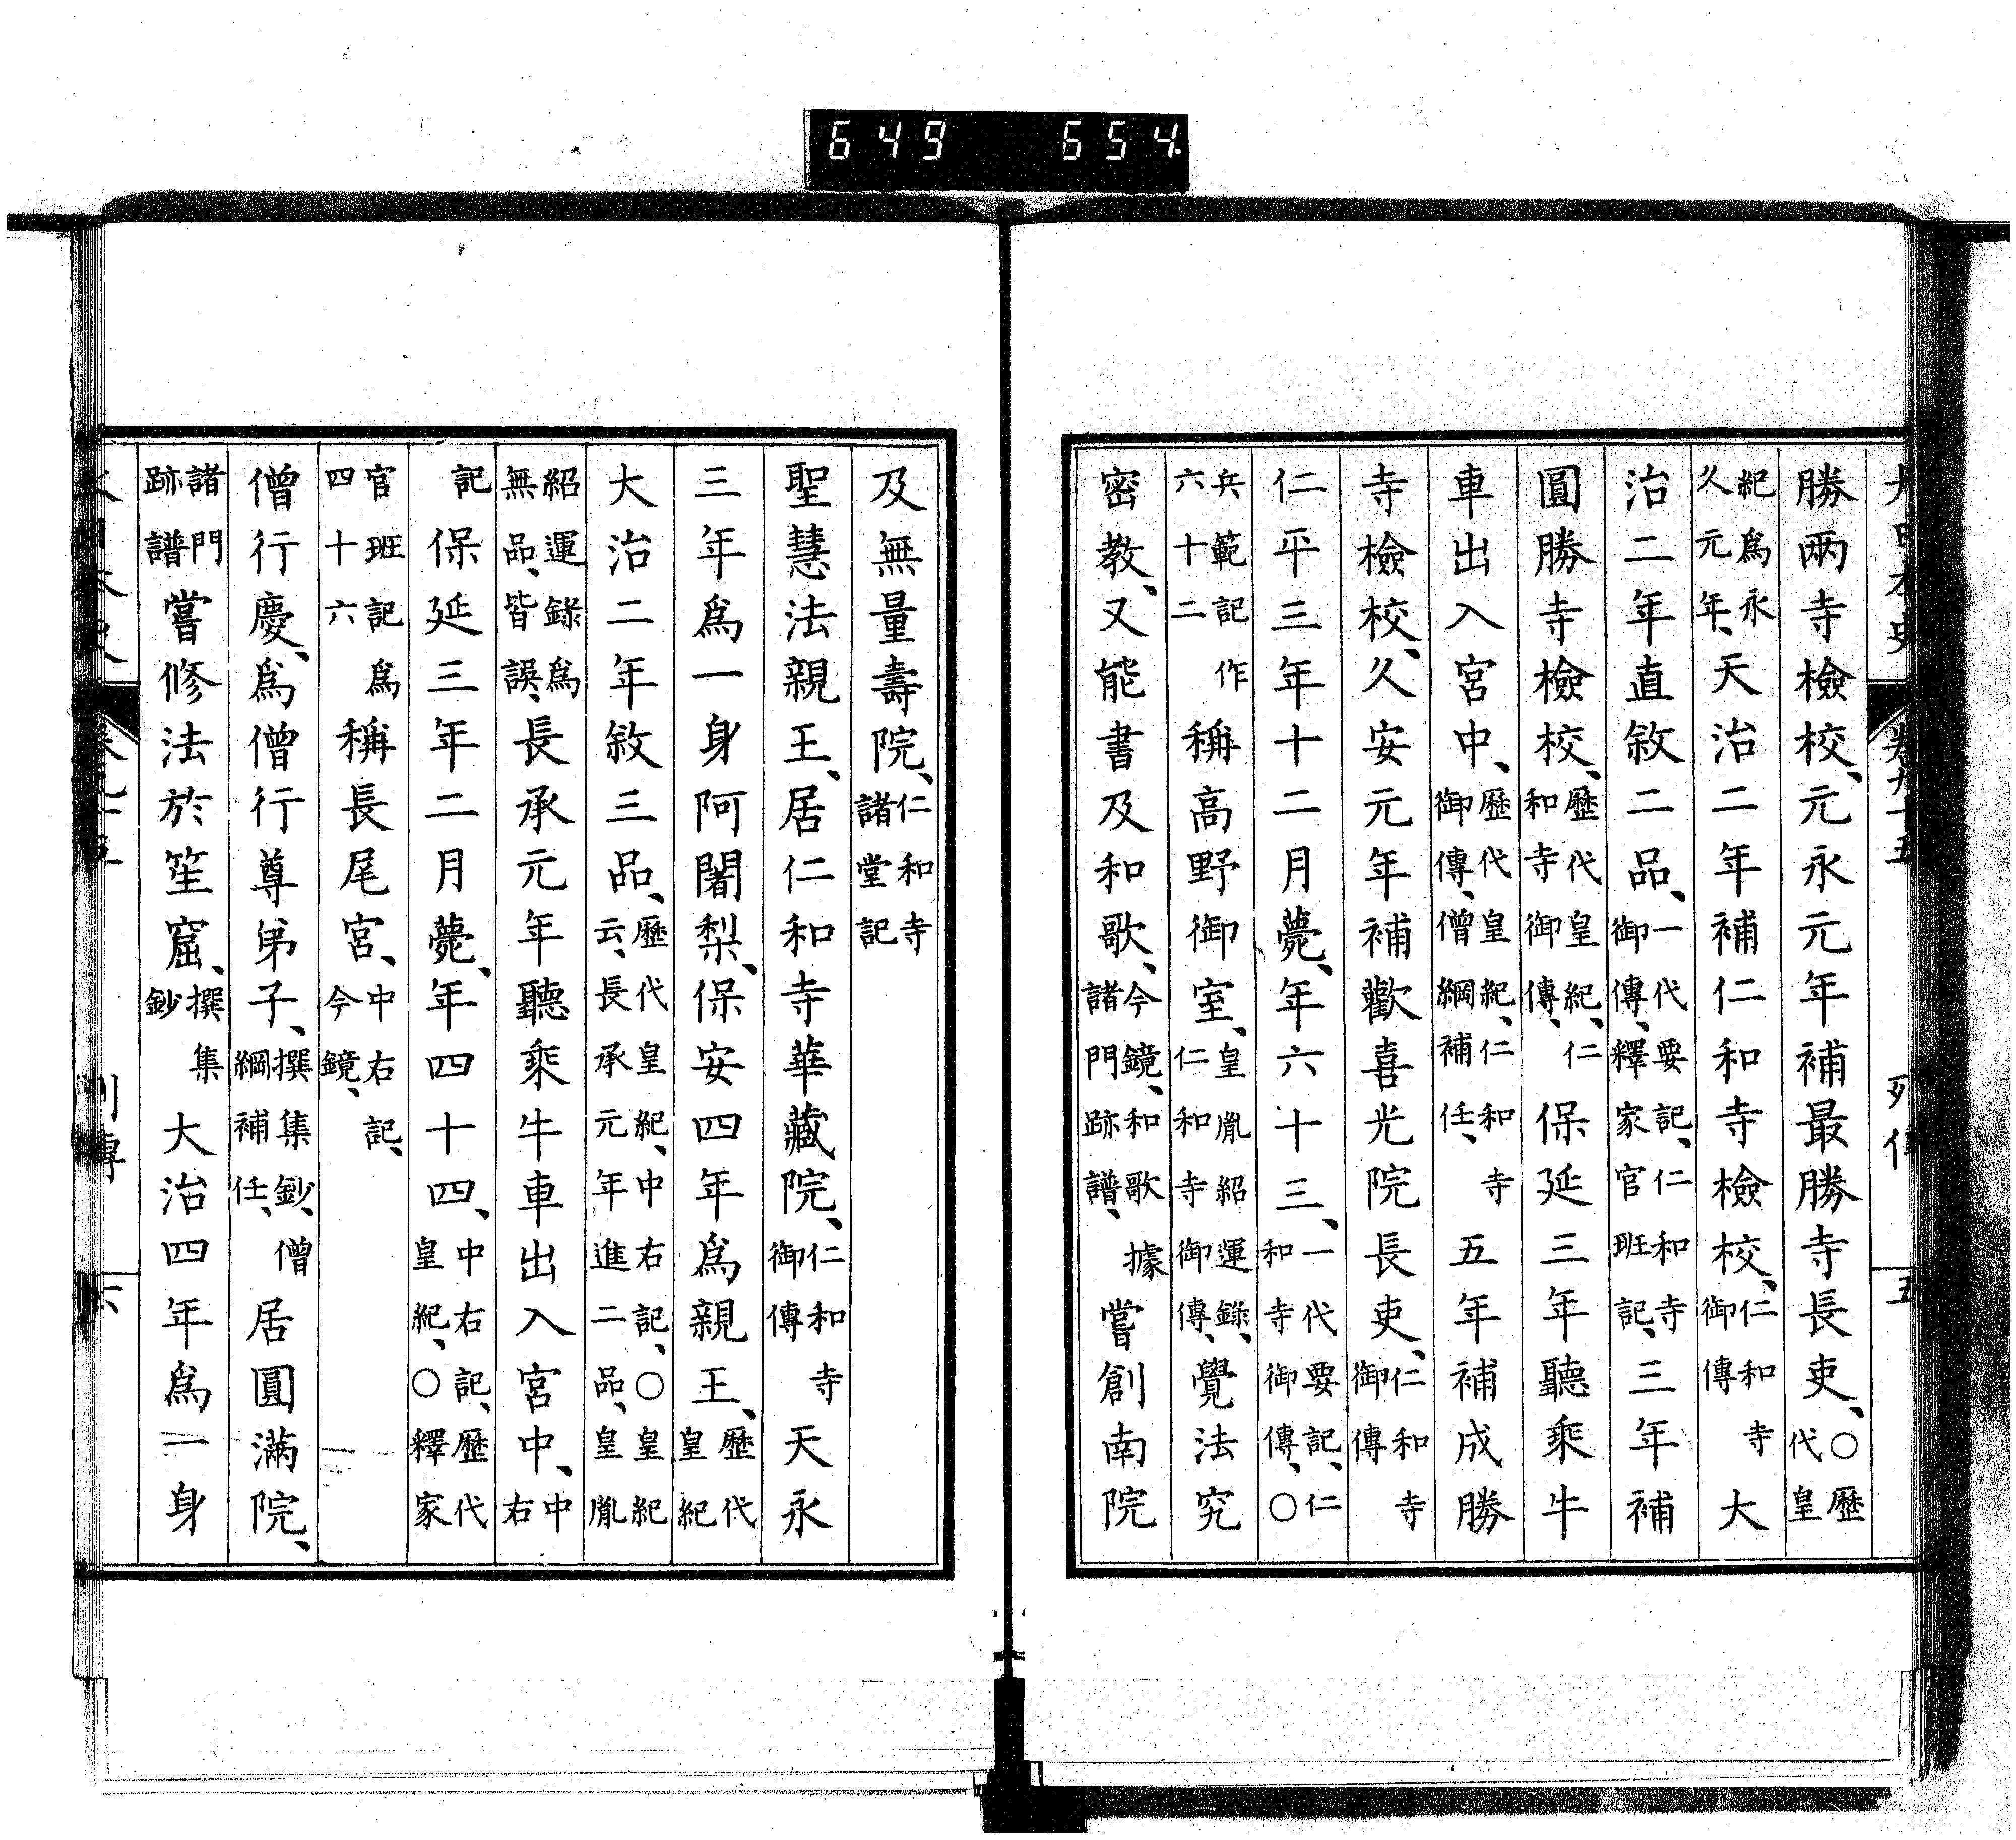 649 654
大日本史 卷九十五 列傳 五
勝兩寺檢校、元永元年補最勝寺長吏、○歷代皇
紀爲永久元年、天治二年補仁和寺檢校、仁和寺御傳大
治二年直敘二品、一代要記、仁和寺御傳、釋家官班記、三年補
圓勝寺檢校、歷代皇紀、仁和寺御傳、保延三年聽乘牛
車出入宮中、歷代皇紀、仁和寺御傳、僧綱補任、五年補成勝
寺檢校、久安元年補歡喜光院長吏、仁和寺御傳
仁平三年十二月薨、年六十三、一代要記、仁和寺御傳、○
兵範記作六十二稱高野御室、皇胤紹運錄、仁和寺御傳、覺法究
密教、又能書及和歌、今鏡、和歌據諸門跡譜、嘗創南院
及無量壽院、仁和寺諸堂記
聖慧法親王、居仁和寺華藏院、仁和寺御傳天永
三年爲一身阿闍梨、保安四年爲親王、歷代皇紀
大治二年敘三品、歷代皇紀、中右記、○皇紀云、長承元年進二品、皇胤
紹運錄爲無品、皆誤、長承元年聽乘牛車出入宮中、中右
記保延三年二月薨、年四十四、中右記、歷代皇紀、○釋家
官班記爲四十六稱長尾宮、中右記、今鏡、
僧行慶、爲僧行尊弟子、撰集鈔、僧綱補任、居圓滿院、
諸門跡譜嘗修法於笙窟、撰集鈔大治四年爲一身